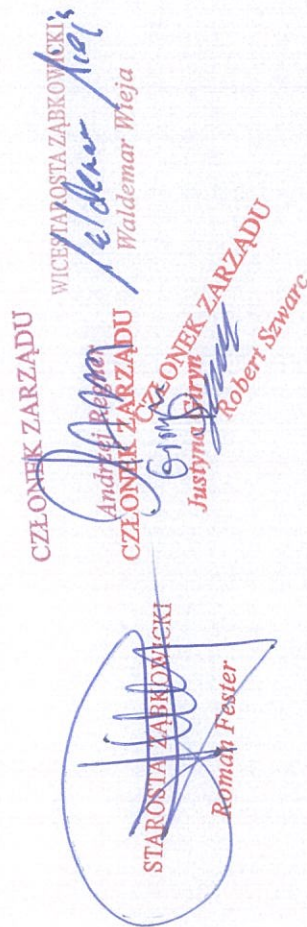 STAROSTA ZĄBKOWICKI
Roman Fester
CZŁONEK ZARZĄDU
Andrzej
CZŁONEK ZARZĄDU
Justyna Giryn
CZŁONEK ZARZĄDU
Robert Szwarc
WICESTAROSTA ZĄBKOWICKI
Waldemar Wieja